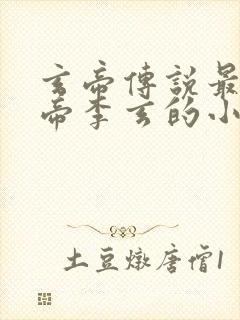 玄帝傳說最
帝李玄的小
土豆燉唐僧1